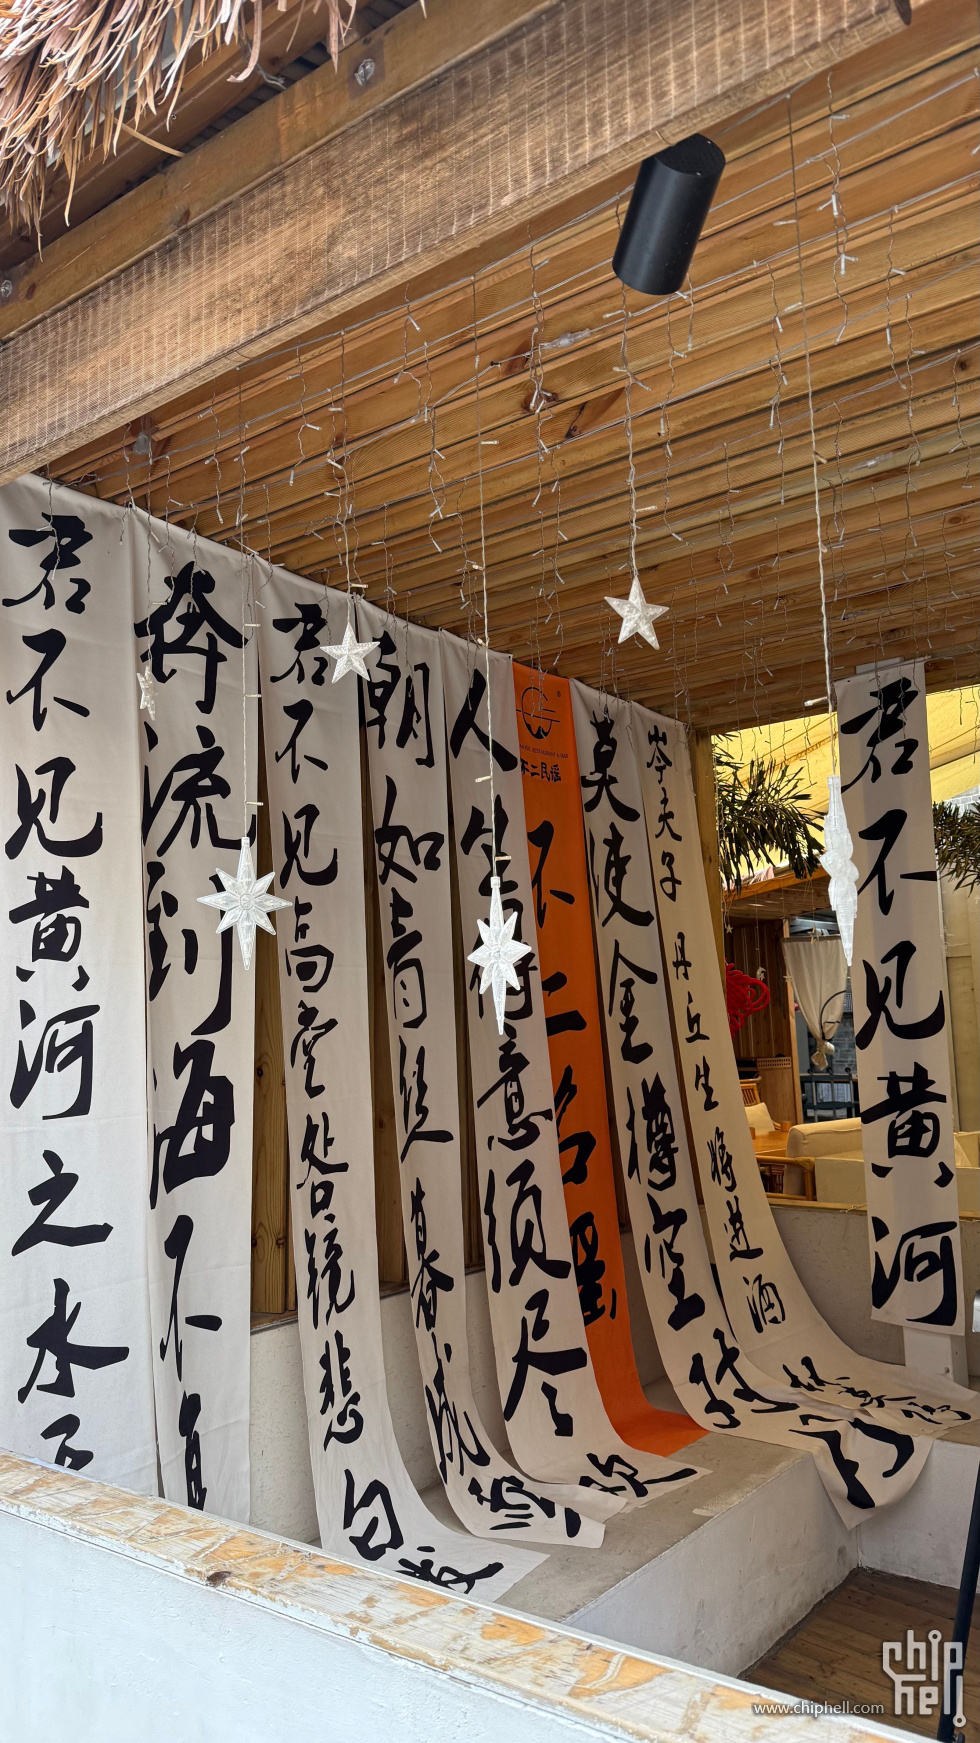 君不见黄河之水天
奔流到海不复
君不见高堂明镜悲白发
朝如青丝暮成雪
人生得意须尽欢
不二民谣
不二民谣
莫使金樽空对月
岑夫子 丹丘生 将进酒
君不见黄河
chip hell
www.chiphell.com